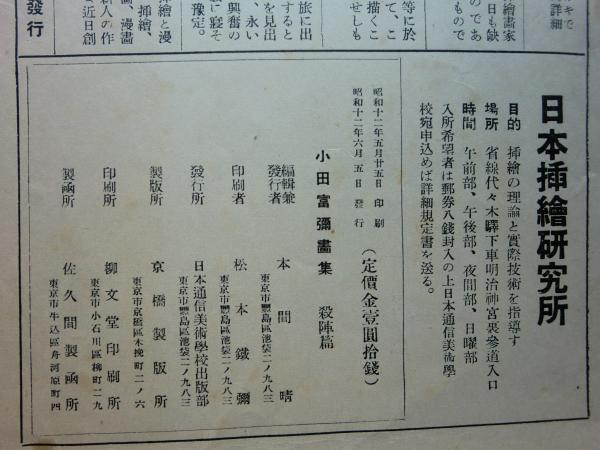 日本挿繪研究所
目的 挿繪の理論と實際技術を指導す
場所 省線代々木驛下車明治神宮裏參道入口
時間 午前部、午後部、夜間部、日曜部
入所希望者は郵券八錢封入の上日本通信美術學
校宛申込めば詳細規定書を送る。
昭和十二年五月廿五日 印刷
昭和十二年六月五日 發行
(定價金壹圓拾錢)
小田富彌畫集 殺陣篇
編輯兼
發行者 本間晴
東京市豐島區池袋二ノ九八三
印刷者 松本鐵彌
東京市豐島區池袋二ノ九八三
發行所 日本通信美術學校出版部
東京市豐島區池袋二ノ九八三
製版所 京橋製版所
東京市京橋區木挽町二ノ六
印刷所 柳文堂印刷所
東京市小石川區柳町二九
製函所 佐久間製函所
東京市牛込區舟河原町四
キで
詳細
繪畫家
日も缺
のであ
もので
等に於
て、こ
描くこ
せしも
旅に出
すると
を見出
、永い
興奮の
に寝そ
豫定。
繪と漫
挿繪、
、漫畫
人の作
近日創
發行